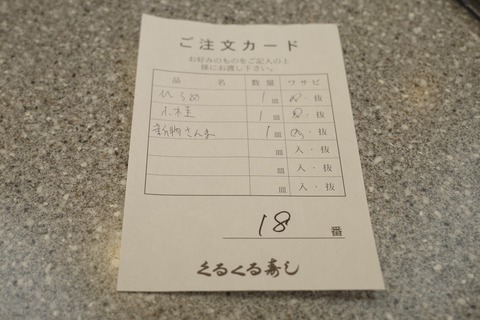 ご注文カード
お好みのものをご記入の上
係にお渡し下さい。
品 名 数量 ワサビ
1皿 入・抜
小柱 1皿 入・抜
新物さんま 1皿 入・抜
皿 入・抜
皿 入・抜
皿 入・抜
18 番
くるくる寿し